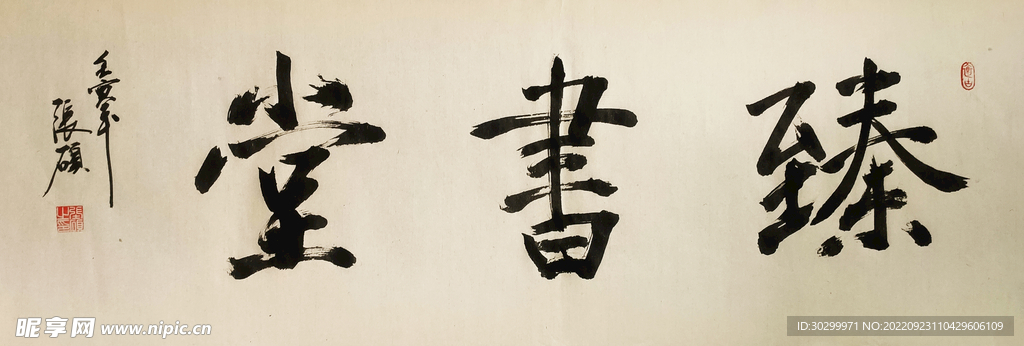 臻書堂
壬寅年
張碩
昵享网 www.nipic.cn
ID:30299971 NO:20220923110429606109